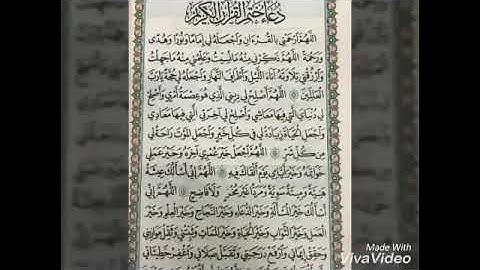 دُعَاءُ خَتْمِ القُرْآنِ الكَرِيمِ
اللَّهُمَّ ارْحَمْنِي بِالقُرْءَانِ وَاجْعَلْهُ لِي إِمَامًا وَنُورًا وَهُدًى
وَرَحْمَةً اللَّهُمَّ ذَكِّرْنِي مِنْهُ مَا نَسِيتُ وَعَلِّمْنِي مِنْهُ مَا جَهِلْتُ
وَارْزُقْنِي تِلَاوَتَهُ آنَاءَ اللَّيْلِ وَأَطْرَافَ النَّهَارِ وَاجْعَلْهُ لِي حُجَّةً يَارَبَّ
العَالَمِينَ اللَّهُمَّ أَصْلِحْ لِي دِينِي الَّذِي هُوَ عِصْمَةُ أَمْرِي وَأَصْلِحْ
لِي دُنْيَايَ الَّتِي فِيهَا مَعَاشِي وَأَصْلِحْ لِي آخِرَتِي الَّتِي فِيهَا مَعَادِي
وَاجْعَلِ الحَيَاةَ زِيَادَةً لِي فِي كُلِّ خَيْرٍ وَاجْعَلِ المَوْتَ رَاحَةً لِي
مِنْ كُلِّ شَرٍّ اللَّهُمَّ اجْعَلْ خَيْرَ عُمْرِي آخِرَهُ وَخَيْرَ عَمَلِي
خَوَاتِمَهُ وَخَيْرَ أَيَّامِي يَوْمَ أَلْقَاكَ فِيهِ اللَّهُمَّ إِنِّي أَسْأَلُكَ عِيشَةً
هَنِيَّةً وَمِيتَةً سَوِيَّةً وَمَرَدًّا غَيْرَ مُخْزٍ وَلَا فَاضِحٍ اللَّهُمَّ إِنِّي
أَسْأَلُكَ خَيْرَ المَسْأَلَةِ وَخَيْرَ الدُّعَاءِ وَخَيْرَ النَّجَاحِ وَخَيْرَ العِلْمِ وَخَيْرَ
العَمَلِ وَخَيْرَ الثَّوَابِ وَخَيْرَ الحَيَاةِ وَخَيْرَ المَمَاتِ وَثَبِّتْنِي وَثَقِّلْ مَوَازِينِي
وَحَقِّقْ إِيمَانِي وَارْفَعْ دَرَجَتِي وَتَقَبَّلْ صَلَاتِي وَاغْفِرْ خَطِيئَاتِي
Made With
VivaVideo